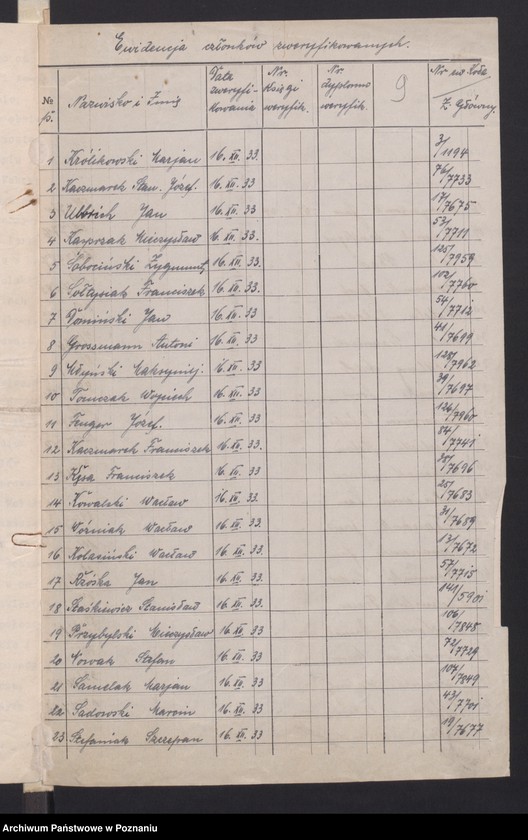 Ewidencja członków zweryfikowanych.
№ p. Nazwisko i Imię Data zweryfi-kowania Nr. Księgi weryfik. Nr. dyplomu weryfik. 9 Nr ew. Koła / Z. Główny.
1 Królikowski Marjan 16. XII. 33. 3/1194
2 Kaczmarek Stan. Józef. 16. XII. 33. 76/7733
3 Ulbrich Jan 16. XII. 33 17/7675
4 Kasprzak Mieczysław 16. XII. 33. 53/7711
5 Sobociński Zygmunt 16. XII. 33. 125/7959
6 Sołapiak Franciszek 16. XII. 33. 102/7760
7 Tomiński Jan 16. XII. 33 54/7712
8 Grossmann Antoni 16. XII. 33 41/7699
9 Maksymilj. 16. XII. 33 128/7962
10 Tomczak Wojciech 16. XII. 33 39/7697
11 Fenger Józef. 16. XII. 33 126/7960
12 Kaczmarek Franciszek 16. XII. 33. 84/7741
13 Kysa Franciszek 16. XII. 33 38/7696
14 Kowalski Wacław 16. XII. 33 25/7683
15 Woźniak Wacław 16. XII. 33 31/7689
16 Kolasiński Wacław 16. XII. 33 13/7672
17 Rzóska Jan 16. XII. 33 57/7715
18 Staśkiewicz Stanisław 16. XII. 33 141/5901
19 Przybylski Mieczysław 16. XII. 33 106/7848
20 Nowak Stefan 16. XII. 33 72/7729
21 Samelak Marjan 16. XII. 33 107/7849
22 Sadowski Marcin 16. XII. 33 43/7701
23 Stefaniak Szczepan 16. XII. 33 19/7677
Archiwum Państwowe w Poznaniu